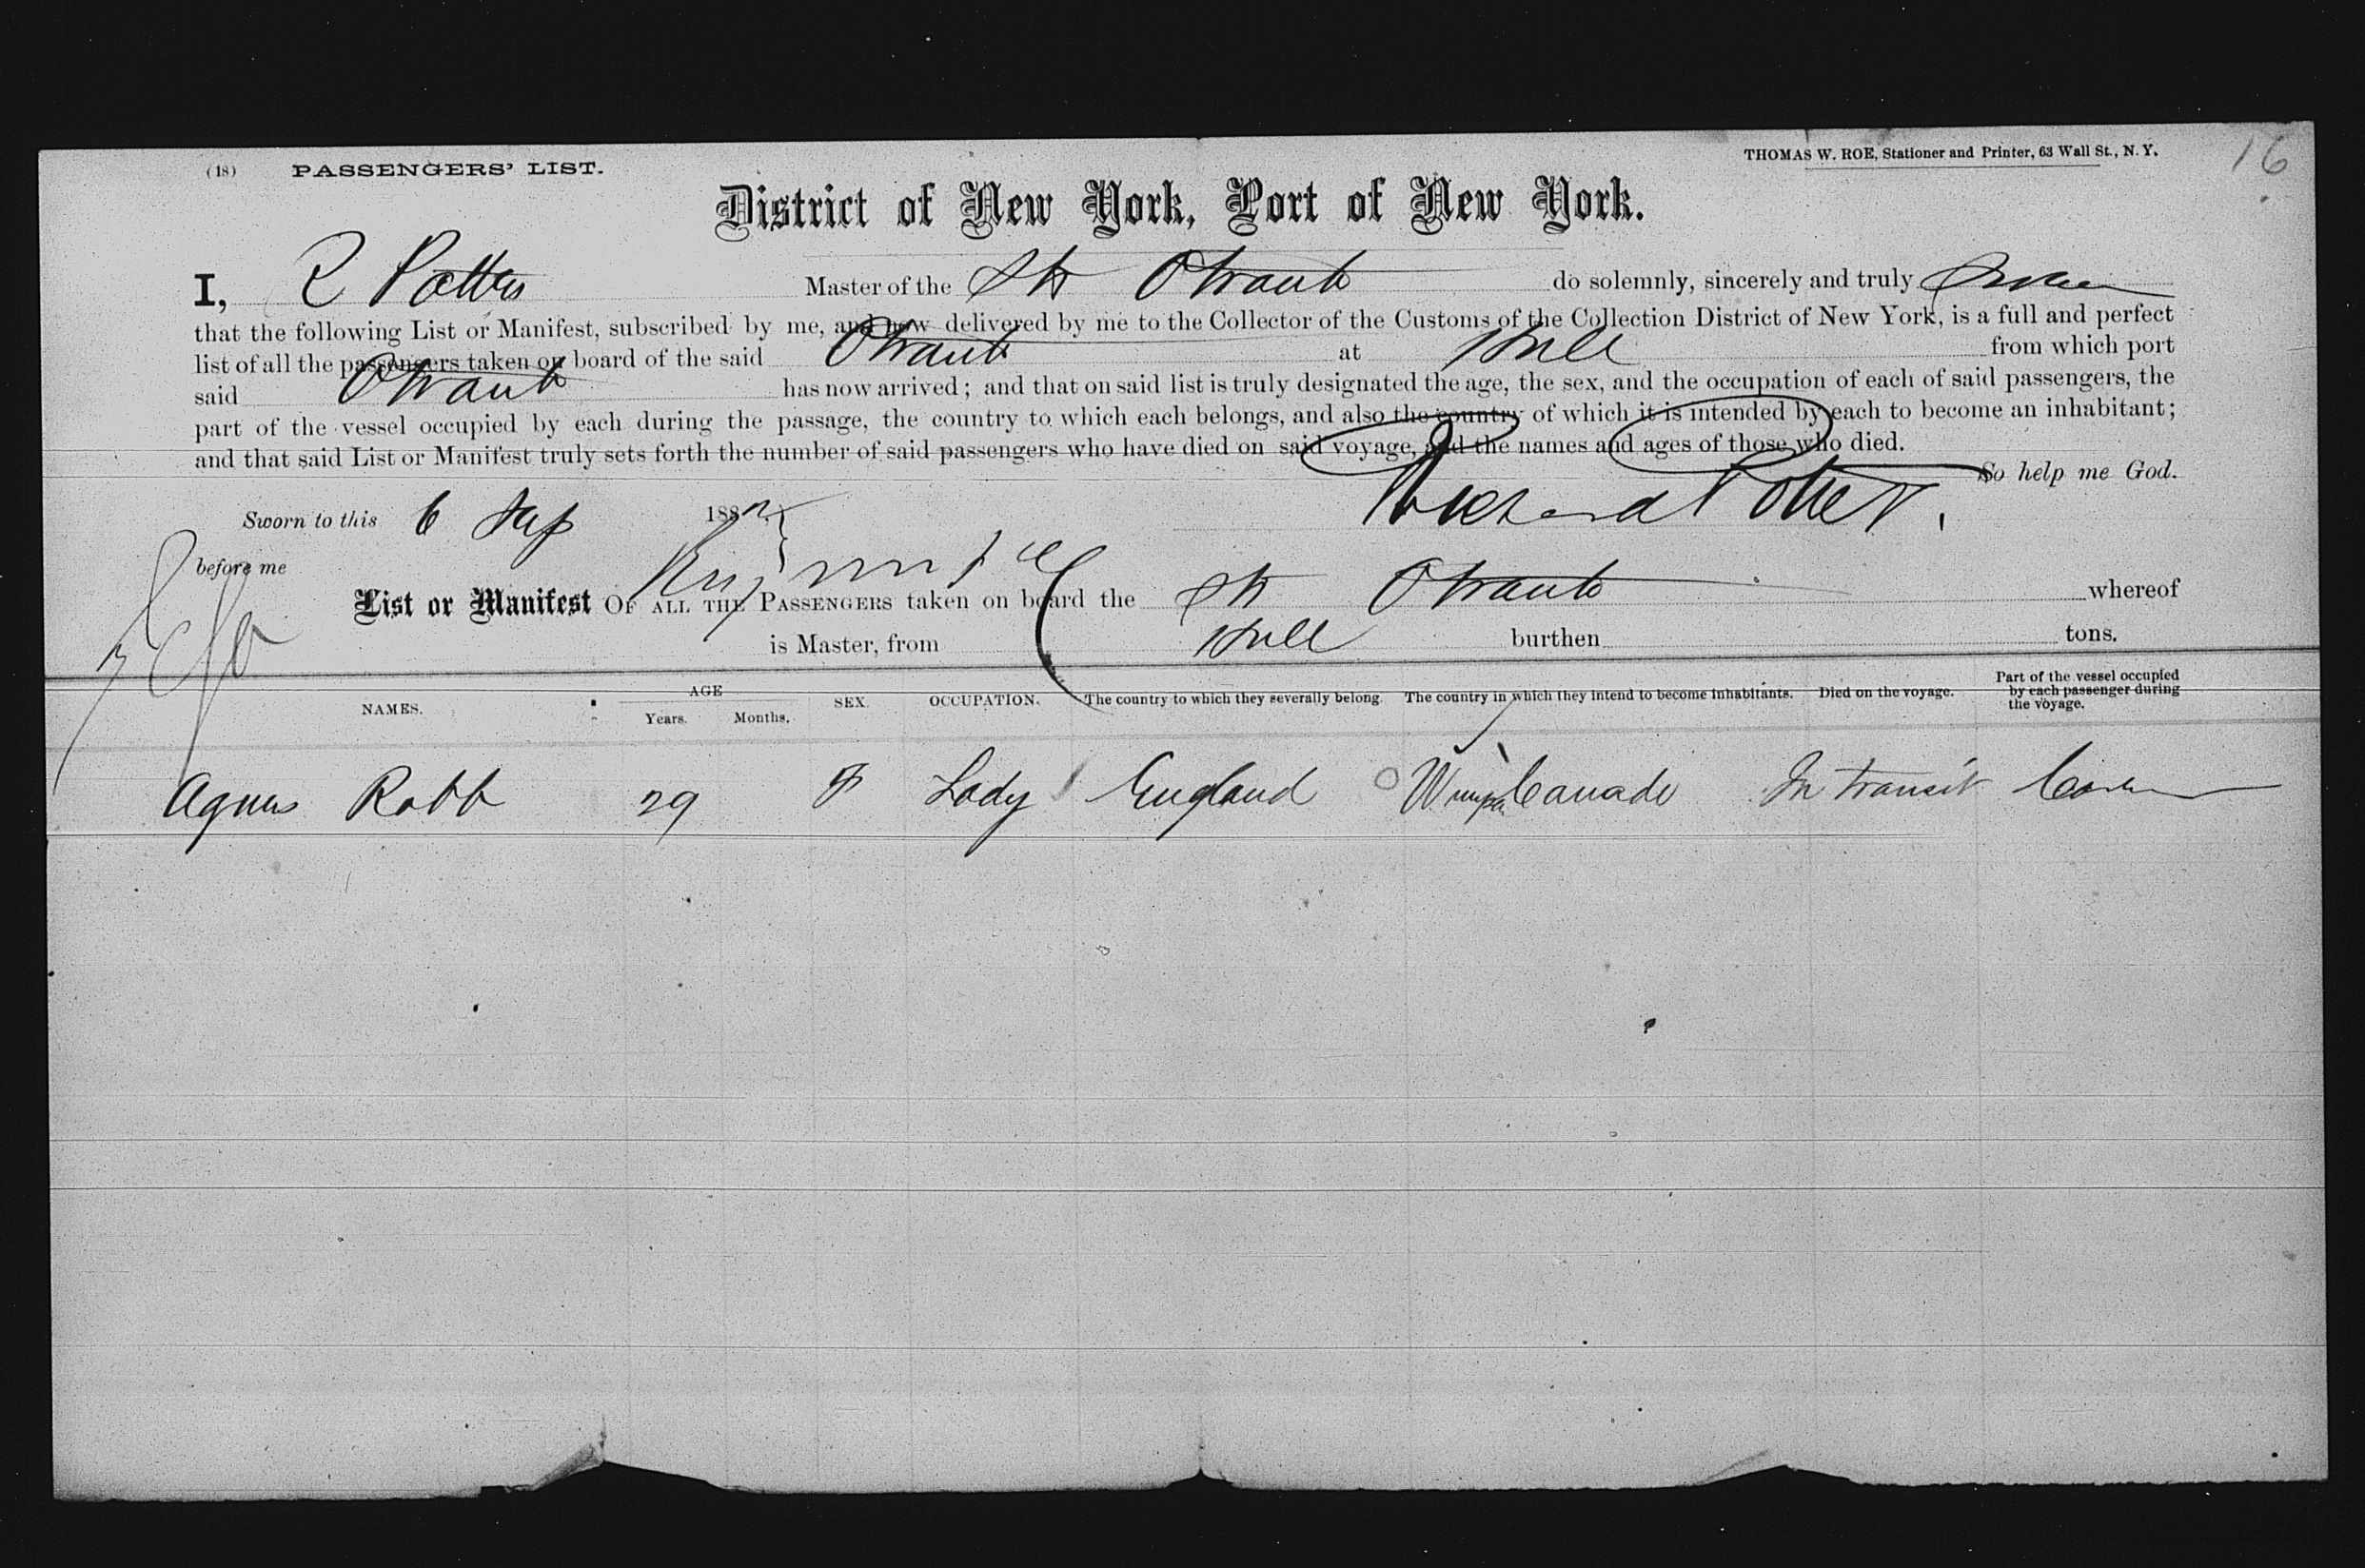 16
(18) PASSENGERS' LIST. THOMAS W. ROE, Stationer and Printer, 63 Wall St., N. Y.
District of New York, Port of New York.
I, R Potter Master of the Str Otranto do solemnly, sincerely and truly swear
that the following List or Manifest, subscribed by me, and now delivered by me to the Collector of the Customs of the Collection District of New York, is a full and perfect
list of all the passengers taken on board of the said Otranto at Hull from which port
said Otranto has now arrived; and that on said list is truly designated the age, the sex, and the occupation of each of said passengers, the
part of the vessel occupied by each during the passage, the country to which each belongs, and also the country of which it is intended by each to become an inhabitant;
and that said List or Manifest truly sets forth the number of said passengers who have died on said voyage, and the names and ages of those who died.
So help me God.
Sworn to this 6 Sep 188 Richard Potter.
before me
List or Manifest OF ALL THE PASSENGERS taken on board the Str Otranto whereof
is Master, from Hull burthen tons.
NAMES. AGE Years. Months. SEX. OCCUPATION. The country to which they severally belong. The country in which they intend to become inhabitants. Died on the voyage. Part of the vessel occupied by each passenger during the voyage.
Agnes Robb 29 F Lady England Canada In transit